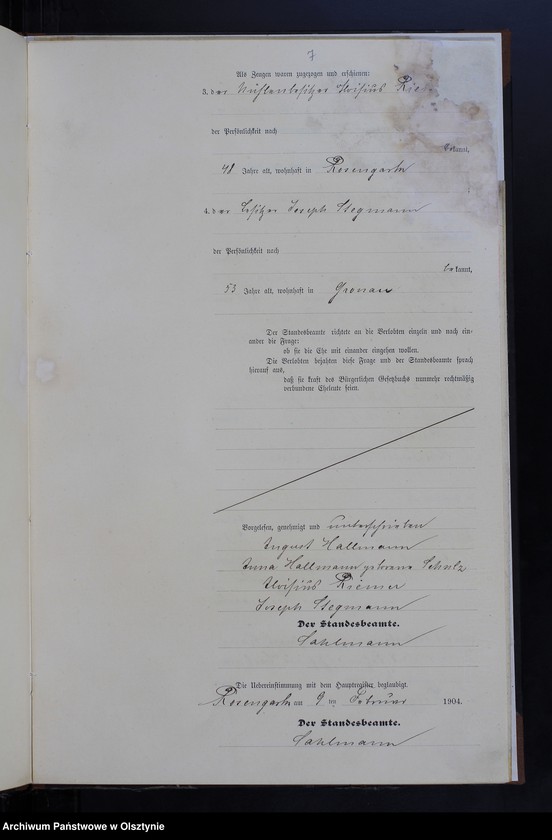 7
Als Zeugen waren zugezogen und erschienen:
3. der Mühlenbesitzer Aloisius
der Persönlichkeit nach
bekannt,
48 Jahre alt, wohnhaft in Rosengarth
4. der Besitzer Joseph Stegmann
der Persönlichkeit nach
bekannt,
53 Jahre alt, wohnhaft in Gronau
Der Standesbeamte richtete an die Verlobten einzeln und nach ein-
ander die Frage:
ob sie die Ehe mit einander eingehen wollen.
Die Verlobten bejahten diese Frage und der Standesbeamte sprach
hierauf aus,
daß sie kraft des Bürgerlichen Gesetzbuchs nunmehr rechtmäßig
verbundene Eheleute seien.
Vorgelesen, genehmigt und unterschrieben
August Hallmann
Anna Hallmann geborene Schulz
Aloisius Riemer
Joseph Stegmann
Der Standesbeamte.
Sahlmann
Die Uebereinstimmung mit dem Hauptregister beglaubigt.
Rosengarth am 9 ten Februar 1904.
Der Standesbeamte.
Sahlmann
Archiwum Państwowe w Olsztynie